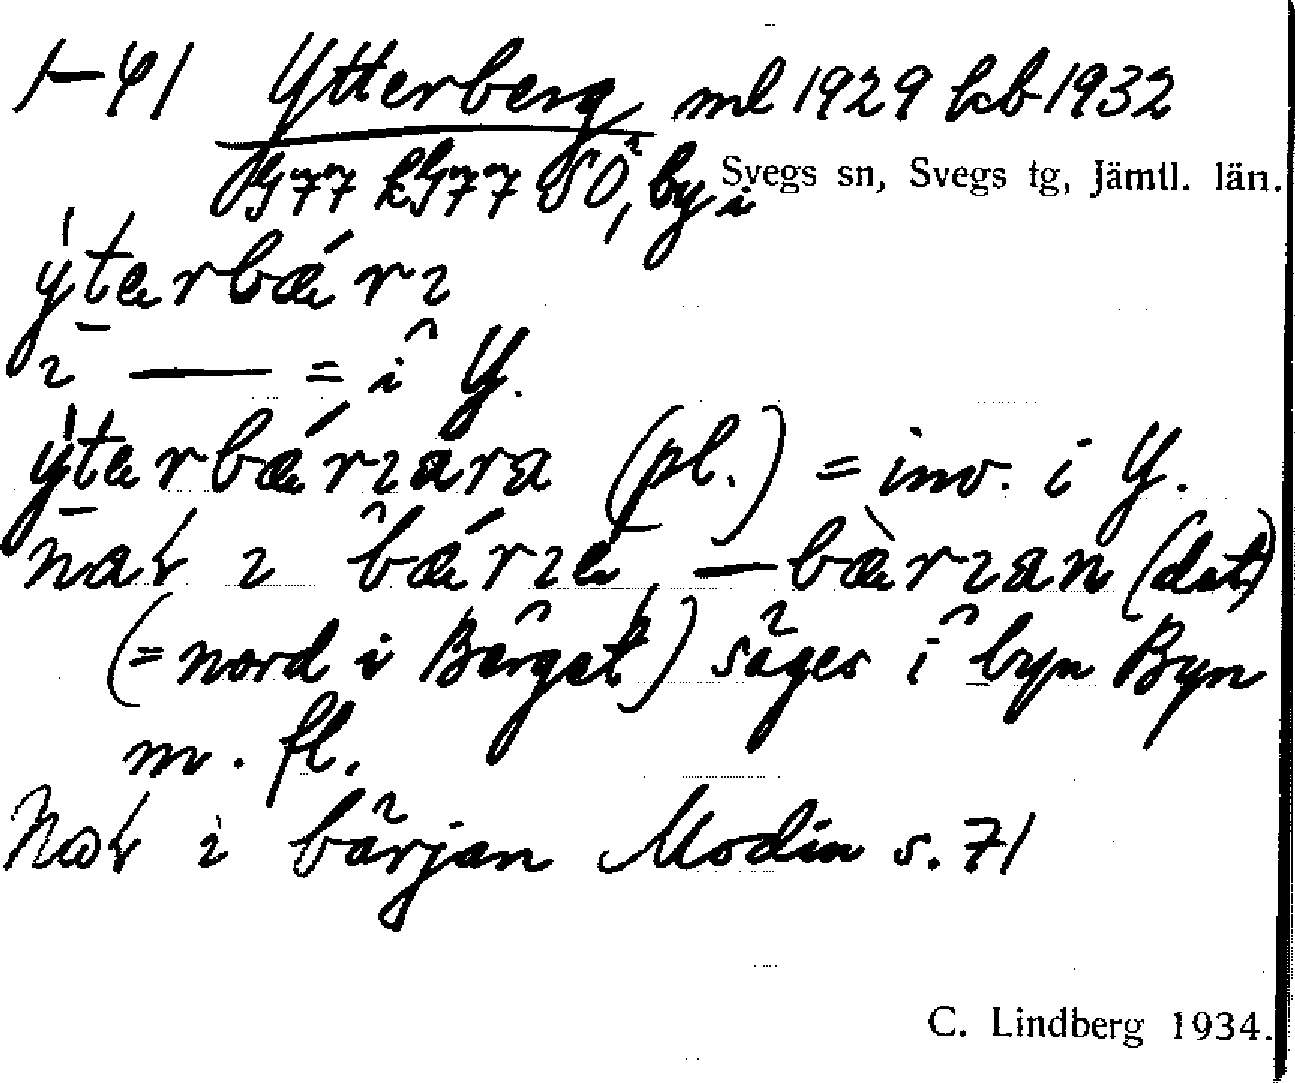 1-41 Ytterberg ml 1929 kb 1932
SO, by i Svegs sn, Svegs tg, Jämtl. län.
ýtərbǽrɩ
ɩ — = i Y.
ýtərbǽrɩara (pl.) = inv. i Y.
ɩ bǽrɩə, — bæ̀rɩan (dat)
(= nord i Bärget) säges i byn Byn
m. fl.
i bärjan Modin s. 71
C. Lindberg 1934.